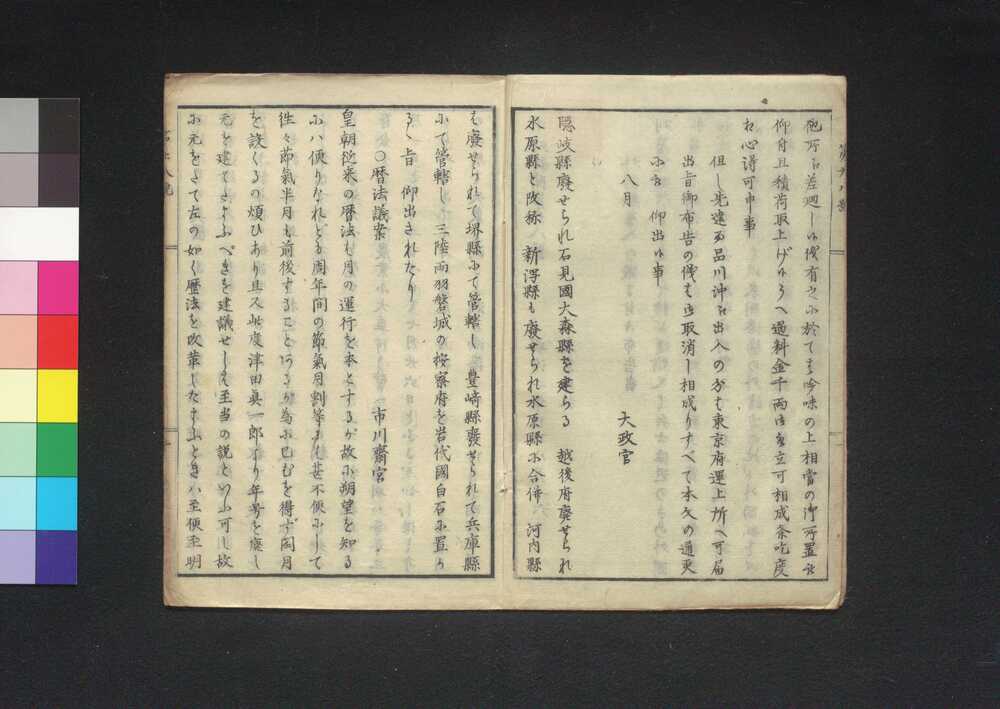 他所江差廻し候儀有之ニ於てハ吟味の上相當の御所置被
仰付且積荷取上ケ候うへ過料金千両御取立可相成条吃度
相心得可申事
但し先達而品川沖江出入の分ハ東京府運上所へ可届
出旨御布告の儀ハ御取消し相成りすべて本文の通更
ニ被　仰出候事
八月　　　　　　　大政官
隠岐縣廃せられ石見國大森縣を建らる　越後府廃せられ
水原縣と改称　新潟縣も廃せられ水原縣ニ合併　河内縣
も廃せられて堺縣にて管轄し　豊﨑縣廃せられて兵庫縣
にて管轄し　三陸両羽磐城の按察府を岩代國白石に置か
るゝ旨　仰出されたり
〇暦法議案　　　　　市川齋宮
皇朝従来の暦法も月の運行を本とするが故に朔望を知る
にハ便りなれども周年間の節氣月割等ニも甚不便にして
往々節氣半月も前後すること阿るが為に已むを得ず閏月
を設くるの煩ひあり且又此度津田真一郎より年号を廃し
元を建てたまふべきを建議せしも至当の説といふ可し故
に元をたて左の如く暦法を改革したまふときハ至便至明